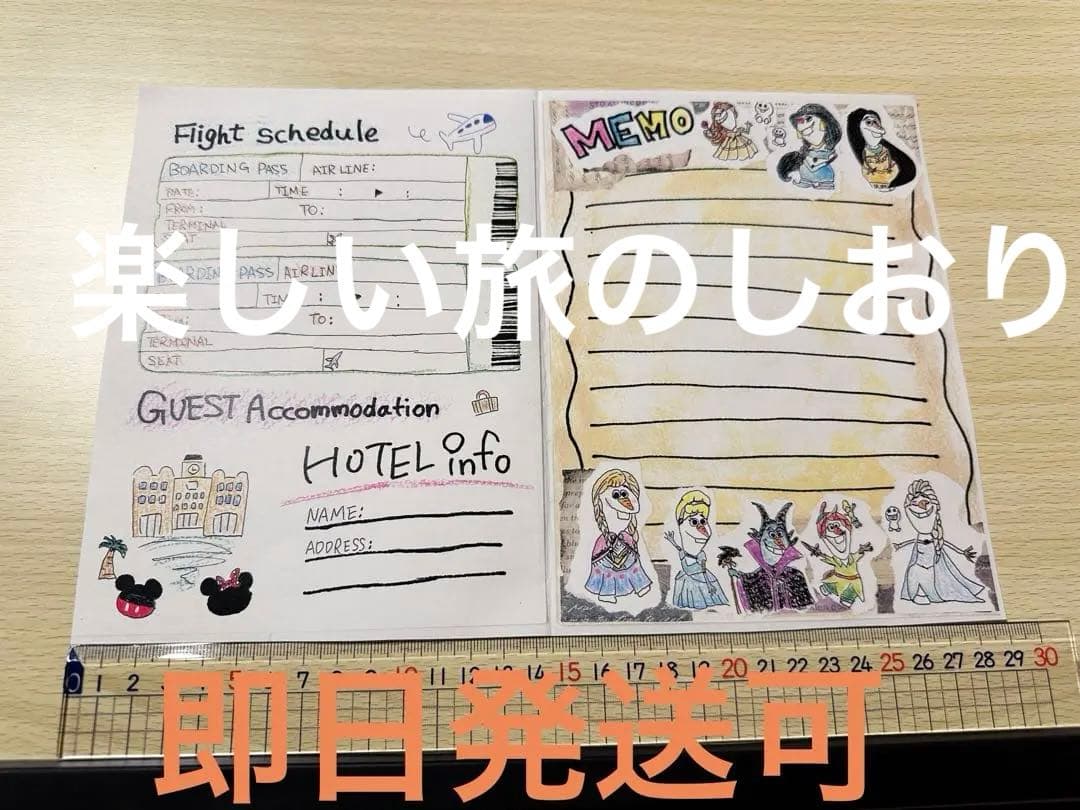 Flight schedule
BOARDING PASS AIRLINE:
DATE: TIME : ▶ :
FROM: TO:
TERMINAL
SEAT
楽しい旅のしおり
PASS AIRLIN
TIM : :
TO:
TERMINAL
SEAT
GUEST Accommodation
HOTEL info
NAME:
ADDRESS:
MEMO
0 1 2 5 7 10 11 12 13 14 15 16 17 18 19 20 21 22 23 24 25 26 27 28 29 30
即日発送可